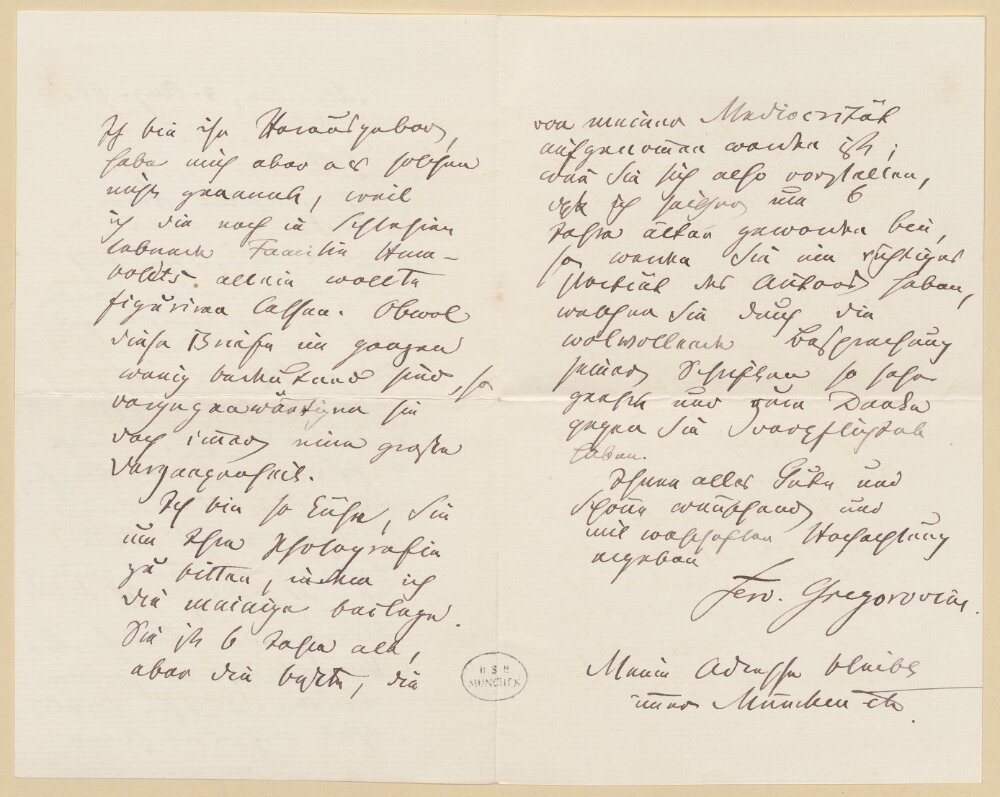 Ich bin ihr Herausgeber,
habe mich aber als solchen
nicht genannt, weil
ich die noch in Schlesien
lebende Familie Hum-
boldts allein wollte
figüriren lassen. Obwol
diese Briefe im ganzen
wenig bedeutend sind, so
vergegenwärtigen sie
doch immer eine große
Vergangenheit.
Ich bin so kühn, Sie
um Ihre Photografie
zu bitten, indem ich
die meinige beilege.
Sie ist 6 Jahre alt,
aber die beste, die
von meiner Mediocrität
aufgenommen worden ist;
wenn Sie sich also vorstellen,
daß ich seither um 6
Jahre älter geworden bin,
so werden Sie ein richtiges
Porträt des Autors haben,
welchen Sie durch die
wolwollende Besprechung
seiner Schriften so sehr
geehrt und zum Danke
gegen Sie verpflichtet
haben.
Ihnen alles Gute und
Schöne wünschend und
mit wahrhafter Hochachtung
ergeben
Ferd. Gregorovius.
Meine Adresse bleibt
immer München etc.
B S B
MÜNCHEN